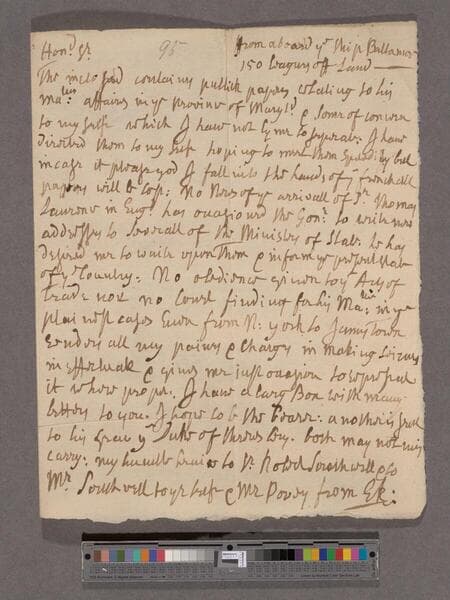 Hon:d Sr.
95
from aboard ye Ship Baltamor
150 Leagues off Land
The inclosed contains publick papers relating to his
Ma:ties affaires in ye Province of Maryld & some of concern
to my self which I have not tyme to I have
directed them to my self hoping to meet them speedily but
in case it please god I fall into the hands of ye french all
papers will be lost: No News of ye arrivall of Sr Thomas
Laurence in Engd has occasiond the Gonr to write now
addresses to severall of the Ministry of State he has
desired me to waite upon them & inform ye present state
of ye Country: No obedience given to ye Acts of
trade nor no Court finding for his Ma:tie in ye
plainest cases Even from N: york to James town
renders all my paines & Charges in making Seizures
in effectuall & gives me just occasion to
it where proper. I have a larg Box with many
letters to you. I hope to be the bearer: another is sent
to his Grace ye Duke of Shrewsbery. both may not mis
carry: my humble service to Sr Robert Southwell also
Mr Southwell to yr self & Mr Povey from ER: